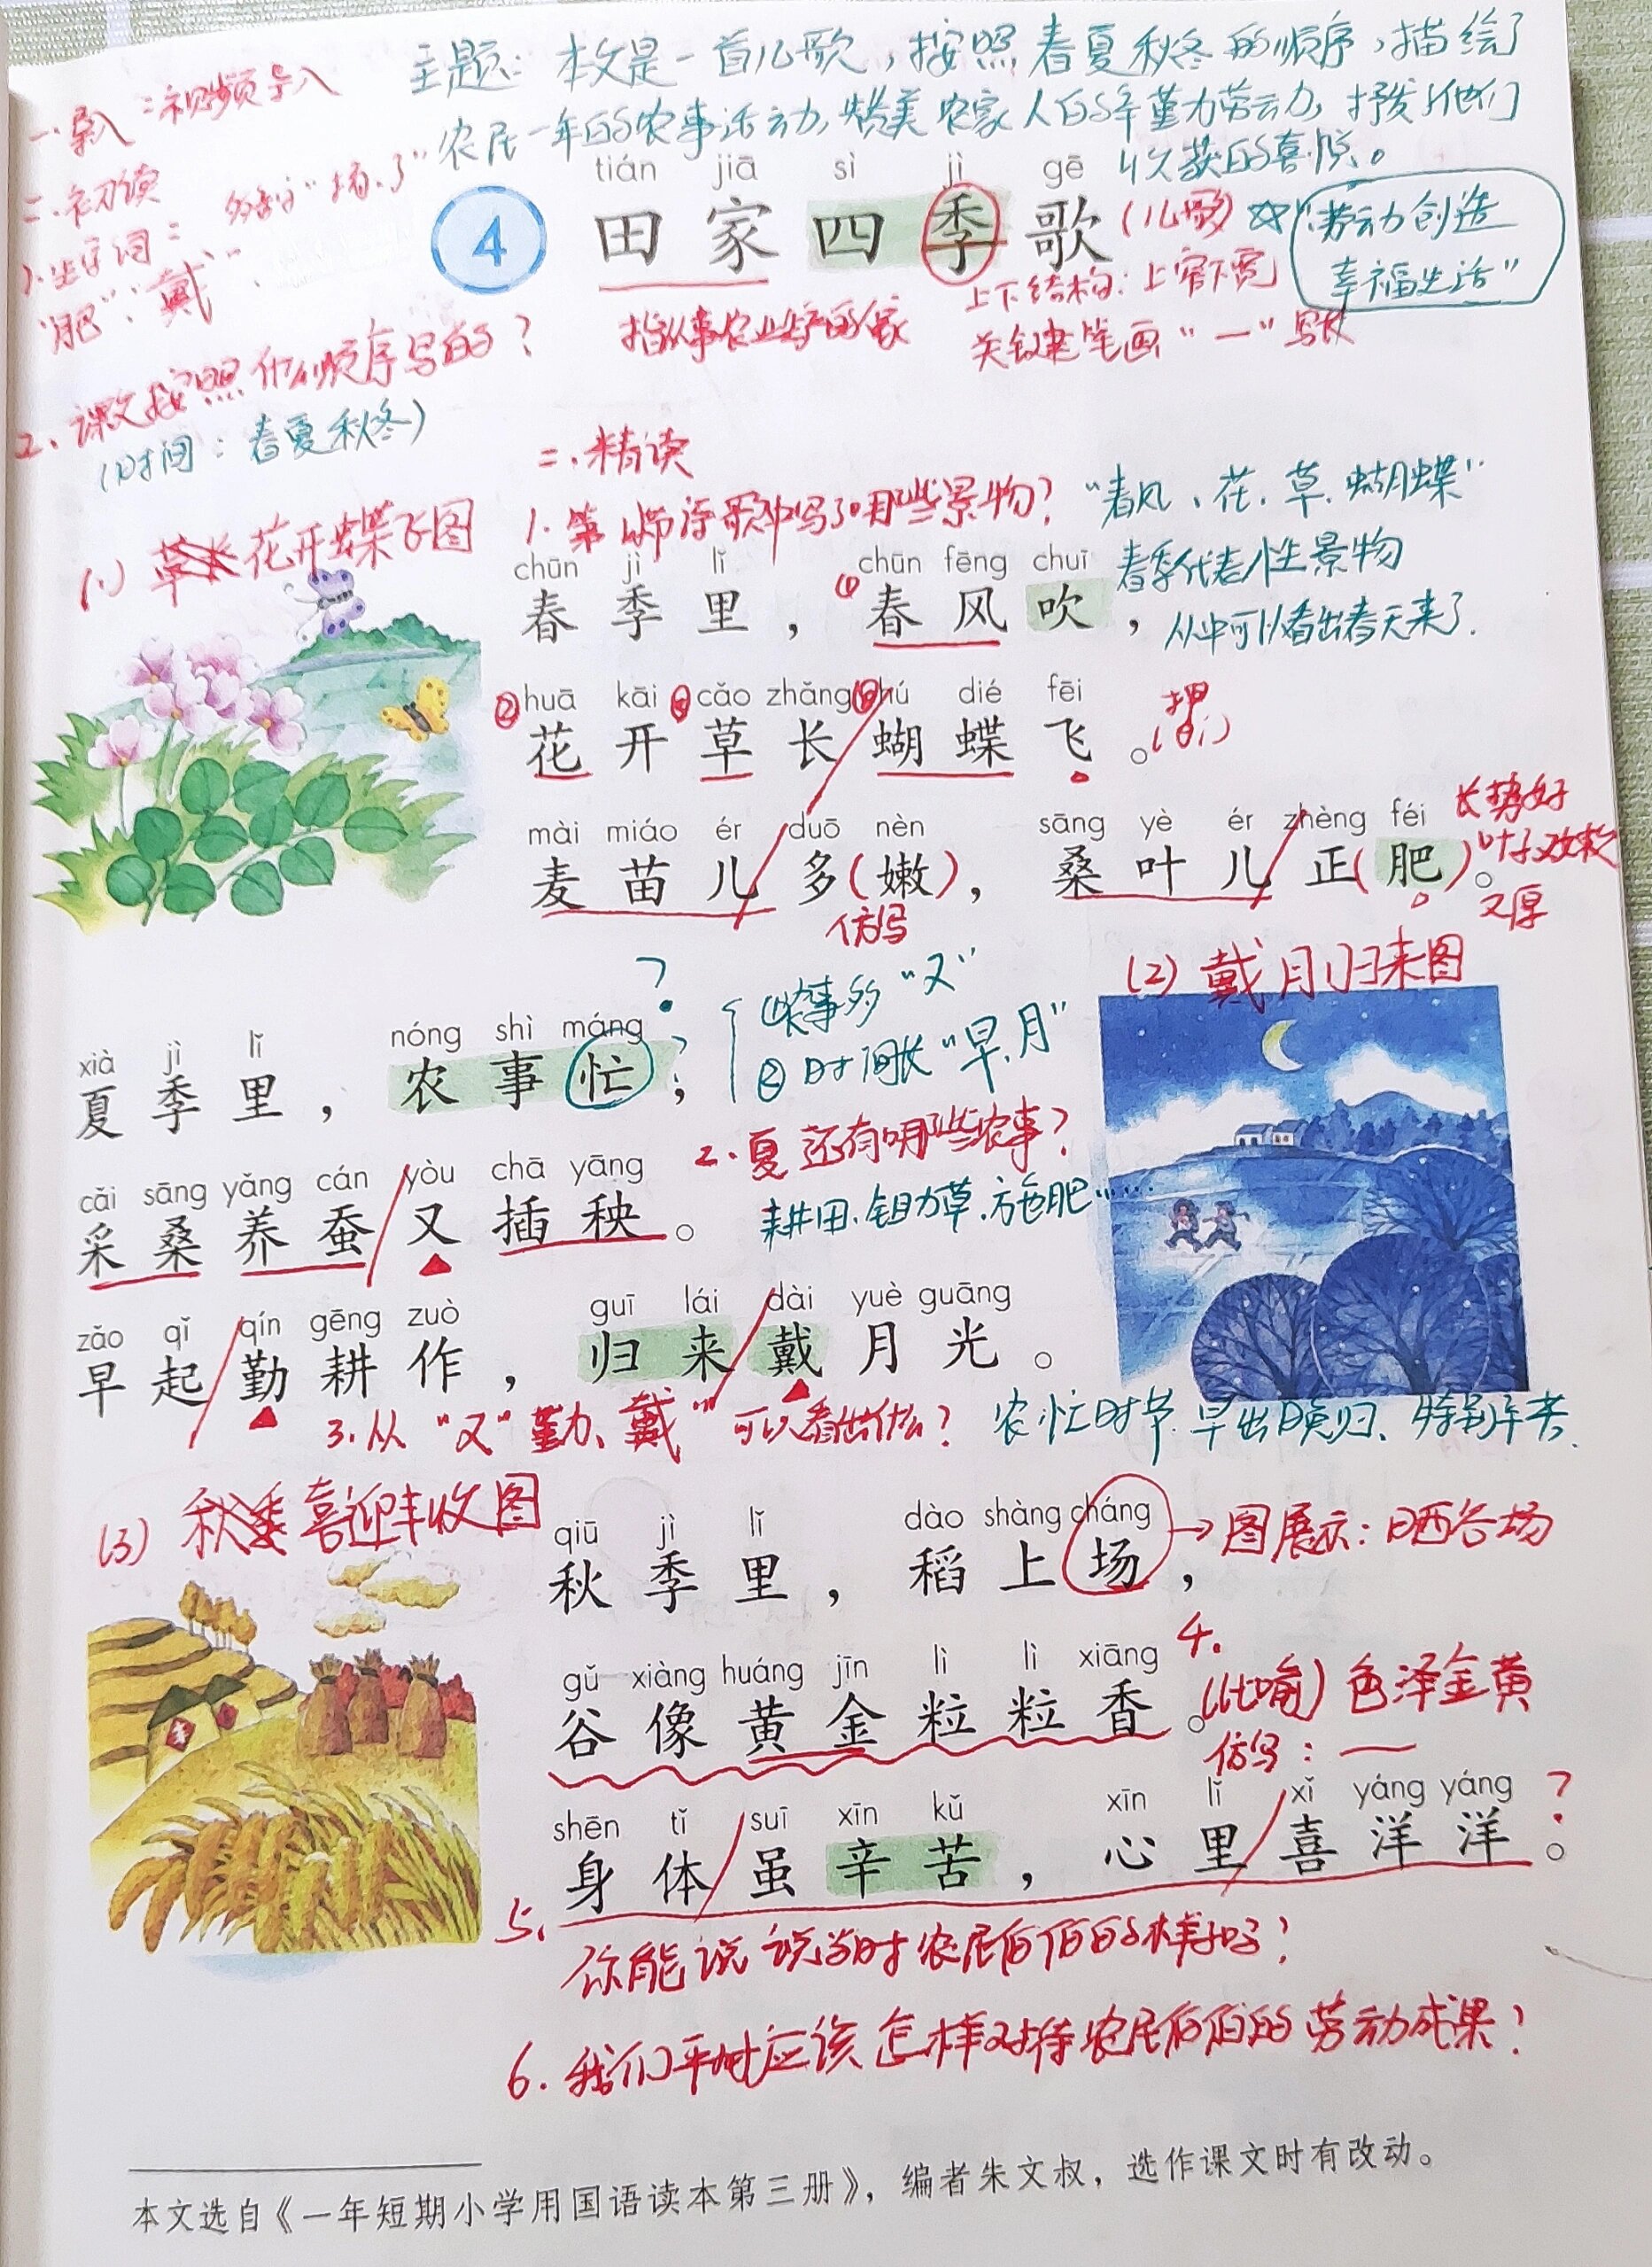 主题：本文是一首儿歌，按照春夏秋冬的顺序，描绘了
农民一年的农事活动，赞美农家人的辛勤劳动，抒发了他们
收获的喜悦。
一.导入：视频导入
二.初读
1.生字词：
"肥""戴"
tián jiā sì jì gē
4 田家四季歌
(儿歌) ☆"劳动创造
幸福生活"
指从事农业生产的人家
上下结构：上窄下宽
关键笔画"一"写长
2、课文按照什么顺序写的？
(时间：春夏秋冬)
三.精读
1.第一小节诗歌中写了哪些景物？"春风、花、草、蝴蝶"
春季代表性景物
从中可以看出春天来了.
(1) 花开蝶飞图
chūn jì lǐ chūn fēng chuī
春季里，①春风吹，
huā kāi cǎo zhǎng hú dié fēi
②花开草长蝴蝶飞。
mài miáo ér duō nèn sāng yè ér zhèng féi
麦苗儿多(嫩)，桑叶儿正(肥)。
仿写
长势好
叶子又大又
又厚
(2) 戴月归来图
xià jì lǐ nóng shì máng
夏季里，农事忙；
？
①农事多"又"
②时间长"早、月"
2.夏还有哪些农事？
耕田.锄草.施肥……
cǎi sāng yǎng cán yòu chā yāng
采桑养蚕又插秧。
zǎo qǐ qín gēng zuò guī lái dài yuè guāng
早起勤耕作，归来戴月光。
3.从"又"勤、戴"可以看出什么？农忙时节.早出晚归、特别辛苦.
(3) 喜迎丰收图
qiū jì lǐ dào shàng cháng
秋季里，稻上场，
→图展示：晒谷场
gǔ xiàng huáng jīn lì lì xiāng
谷像黄金粒粒香。
4.
(比喻)色泽金黄
仿写：—
shēn tǐ suī xīn kǔ xīn lǐ xǐ yáng yáng
身体虽辛苦，心里喜洋洋。
？
5.你能说说当时农民伯伯的样子吗？
6.我们平时应该怎样对待农民伯伯的劳动成果？
本文选自《一年短期小学用国语读本第三册》，编者朱文叔，选作课文时有改动。